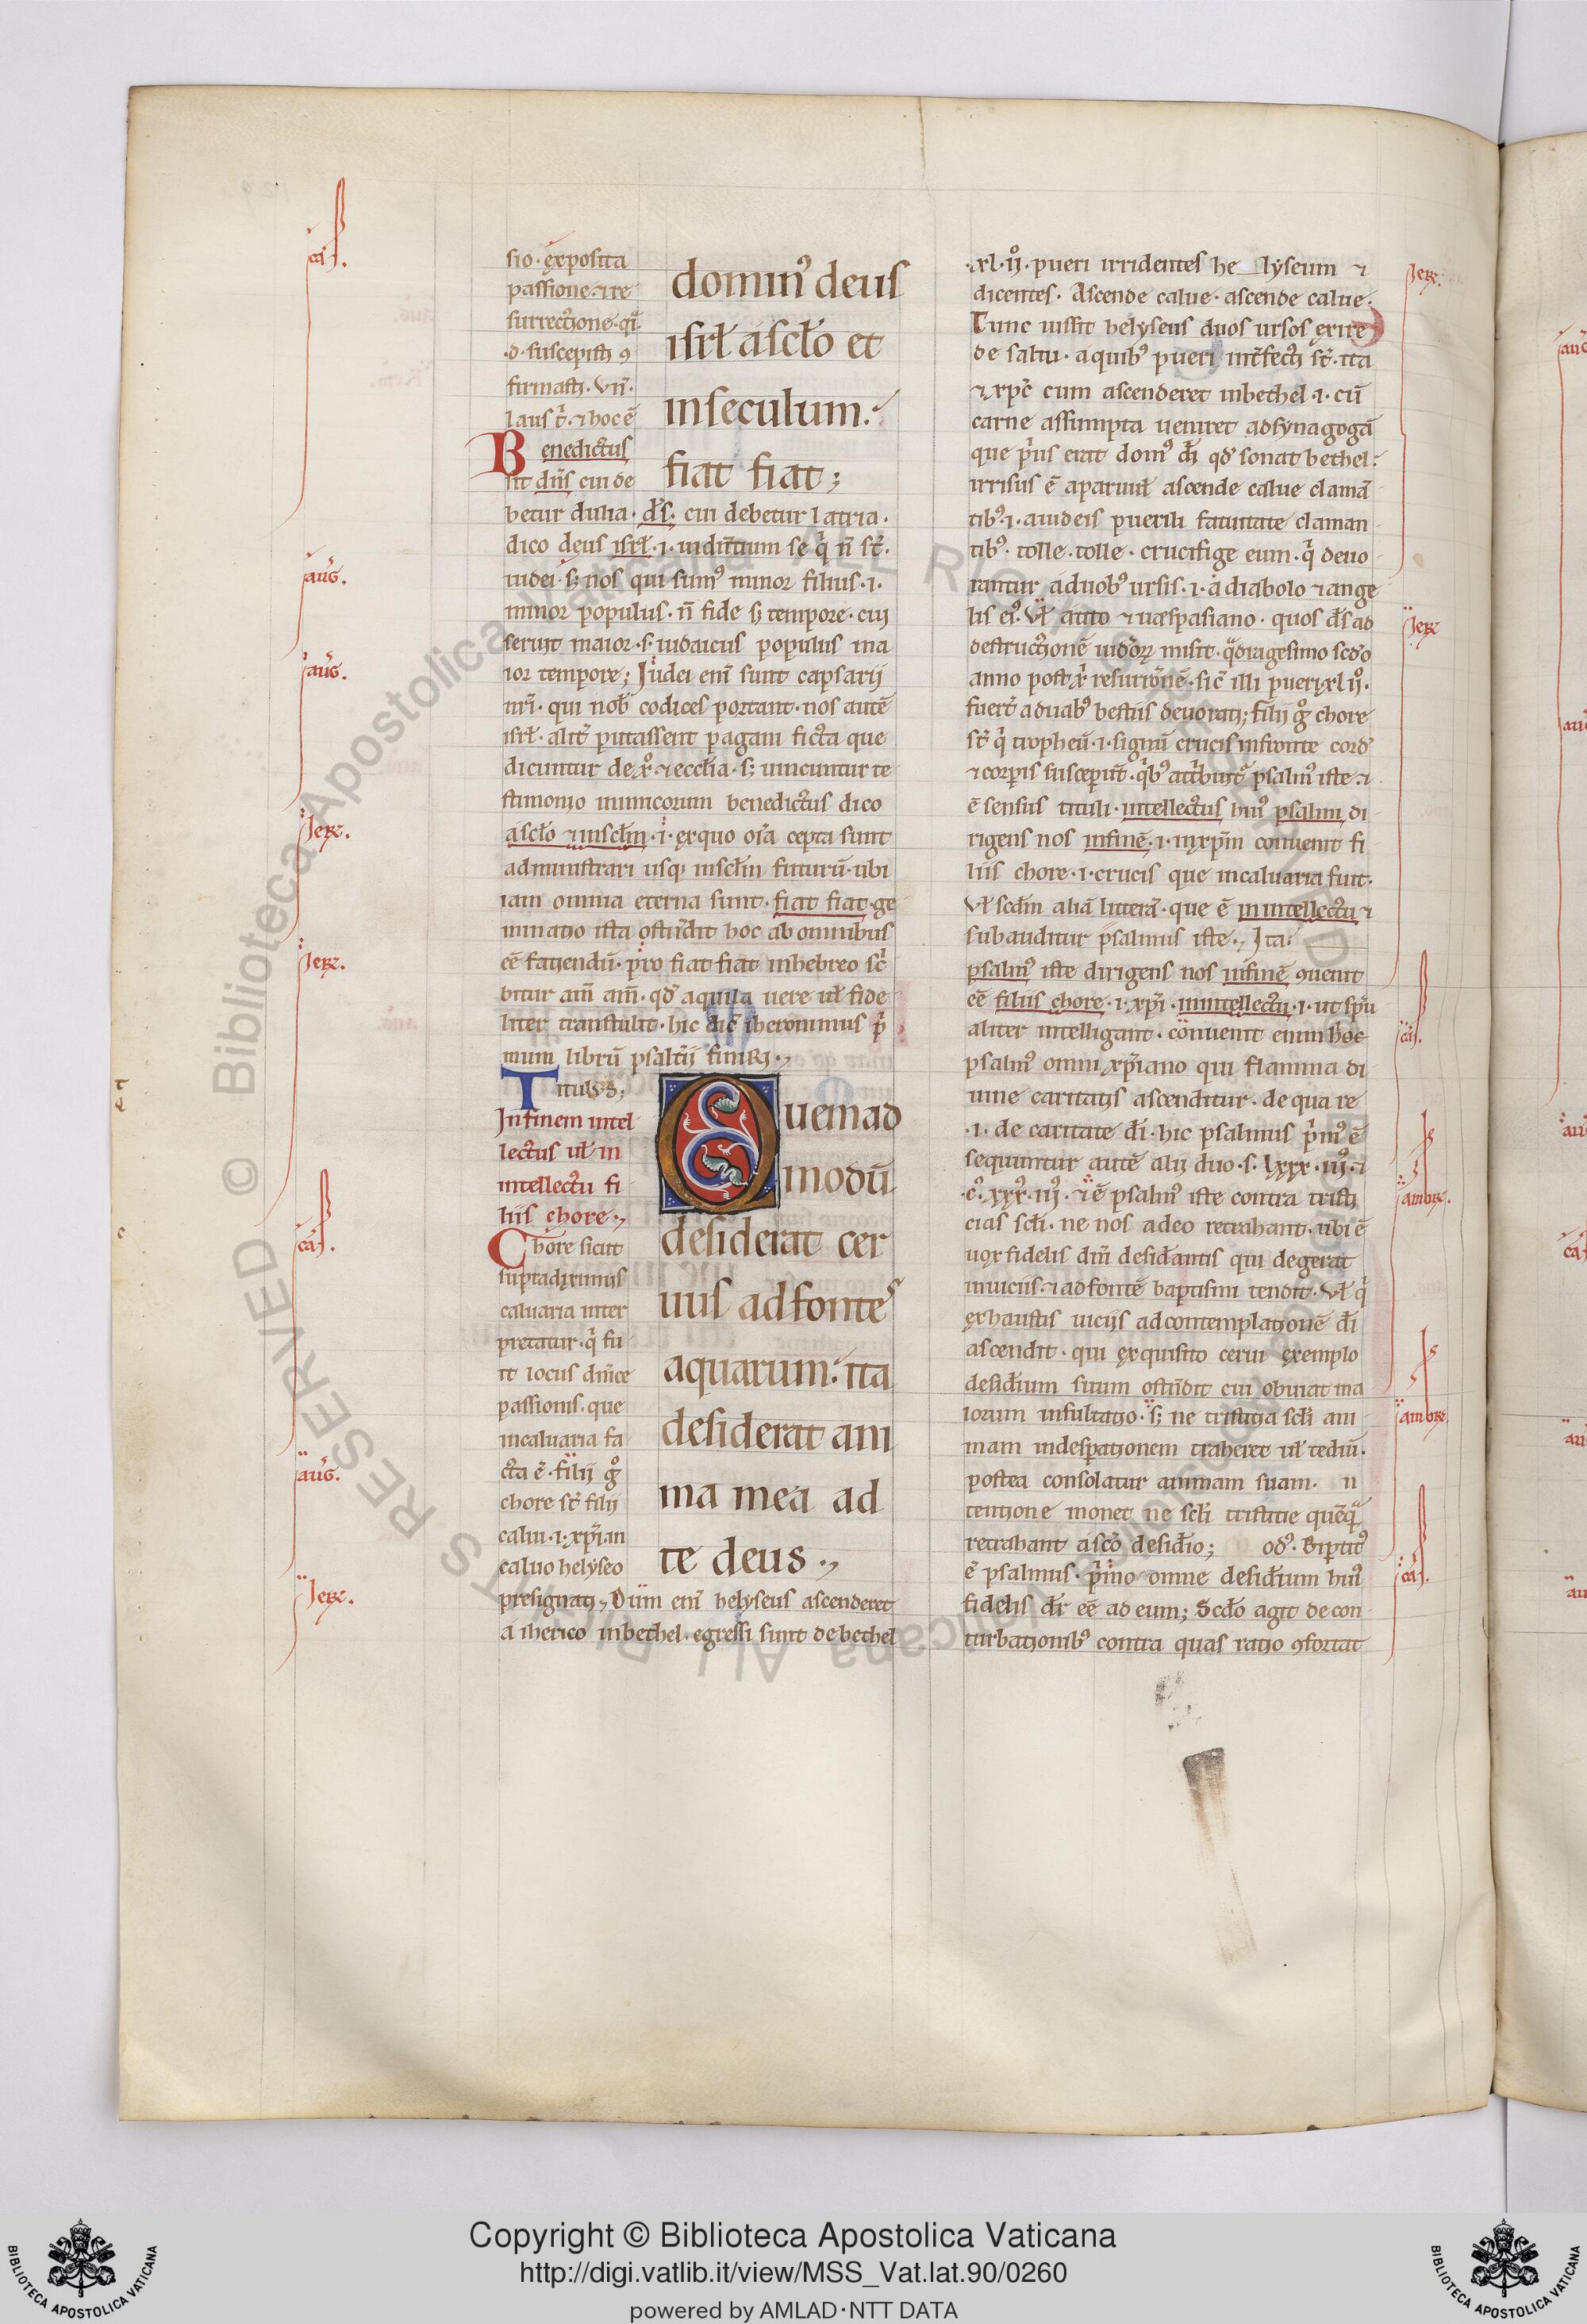 sio. exposita
passione. ⁊ re
surrectione. q̄
.d. suscepisti ꝯ
firmasti. Vn̄.
laus t̄. ⁊ hoc ē
domin᷒ deus
isrł a scło et
in seculum.
fiat fiat;
Benedictus
sit dn̄s cui de
betur dulia. d̄s. cui debetur latria.
dico deus isrł .i. uidentium se q̄ n̄ st̄.
iudei. sꝫ nos qui sum᷒ minor filius .i.
minor populus. n̄ fide sꝫ tempore. cui
seruit maior .s. iudaicus populus ma
ior tempore; Iudei eni sunt capsarij
nr̄i. qui nob̄ codices portant. nos autē
isrł. alit̄ putassent pagani ficta que
dicuntur de xº. ⁊ ecclīa. sꝫ uincuntur te
stimonio inimicorum benedictus dico
a scło ⁊ in scłm .i. ex quo oīa cepta sunt
administrari usqꝫ in scłm futurū. ubi
iam omnia eterna sunt. fiat fiat. ge
minatio ista ostēdit hoc ab omnibus
eē faciendū. pro fiat fiat in hebreo sc̄
bitur am̄ am̄. qd̄ aquila uere uł fide
liter transtulit. hic dic̄ iheronimus p̄
mum librū psalt̄ij finiri.
Titulus;
In finem intel
lectus uł in
intellectu fi
liis chore.
Quemad
modū
desiderat cer
uus ad fontes
aquarum: ita
desiderat ani
ma mea ad
te deus.
Chore sicut
supra diximus
caluaria inter
pretatur. q̄ fu
it locus dn̄ice
passionis. que
in caluaria fa
cta ē. filij gº
chore st̄ filij
calui .i. xp̄i an
caluo helyseo
presignati. Dum eni helyseus ascenderet
a iherico in bethel. egressi sunt de bethel
.xl. ij. pueri irridentes he lyseum ⁊
dicentes. Ascende calue. ascende calue.
Tunc iussit helyseus duos ursos exire
de saltu. a quib᷒ pueri int̄fecti st̄. ita
⁊ xp̄c cum ascenderet in bethel .i. cū
carne assumpta ueniret ad synagogā
que p̄us erat dom᷒ dī qd̄ sonat bethel:
irrisus ē a paruuł ascende calue clamā
tib᷒ .i. a iudeis puerili fatuitate claman
tib᷒. tolle. tolle. crucifige eum. q̄ deuo
rantur a duob᷒ ursis .i. a diabolo ⁊ ange
lis ei᷒. Vł a tito ⁊ uaspasiano. quos d̄s ad
destructionē iudorꝝ misit. q̄dragesimo scdo
anno post xī resurrōnē. sic̄ illi pueri xl ij.
fuert̄ a duab᷒ bestiis deuorati; filij gº chore
st̄ q̄ tropheū .i. signū crucis in fronte cord̄
⁊ corpis susceperūt. qb᷒ attribuit̄ psalm᷒ iste. ⁊
ē sensus tituli. intellectus hui᷒ psalmi di
rigens nos in finē .i. in xp̄m conuenit fi
liis chore .i. crucis que in caluaria fuit.
Vł scdm aliā litterā. que ē in intellectu ⁊
subauditur psalmus iste. Ita:
psalm᷒ iste dirigens nos in finē ꝯuenit
eē filiis chore .i. xp̄i. in intellectu .i. ut sp̄u
aliter intelligant. conuenit enim hoc
psalm᷒ omni xp̄iano qui flamma di
uine caritatis ascenditur. de qua re
.i. de caritate dī. hic psalmus p̄m᷒ ē
sequuntur autē alij duo .s. lxxx. iij. ⁊
.c. xxx. iij. ⁊ ē psalm᷒ iste contra tristi
cias scłi. ne nos adeo retrahant. ubi ē
uox fidelis diu desid̄antis qui degerat
in uiciis. ⁊ ad fontē baptismi tendit. Vł q̄
exhaustis uiciis ad contemplationē dī
ascendit. qui exquisito cerui exemplo
desid̄ium suum ostēdit cui obuiat ma
lorum insultatio. sꝫ ne tristitia scłi ani
mam in despationem traheret uł tediū.
postea consolatur animam suam. n
tentione monet ne scłi tristitie quēq̄
retrahant a scō desid̄io; od᷒. Biptit᷒
ē psalmus. p̄mo omne desid̄ium hui᷒
fidelis dr̄ eē ad eum; Scdo agit de con
turbationib᷒ contra quas ratio ꝯfortat
cas.
aug.
aug.
Ier.
Ier.
cas.
aug.
Ier.
Ier.
Ier
cas.
ambr.
ambr.
cas.
Copyright © Biblioteca Apostolica Vaticana
http://digi.vatlib.it/view/MSS_Vat.lat.90/0260
powered by AMLAD·NTT DATA
BIBLIOTECA APOSTOLICA VATICANA
BIBLIOTECA APOSTOLICA VATICANA